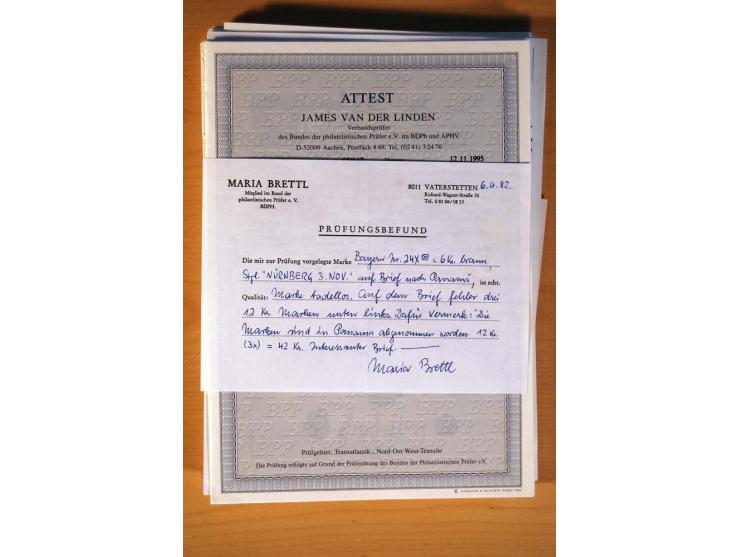 ATTEST
JAMES VAN DER LINDEN
Verbandsprüfer
des Bundes der philatelistischen Prüfer e.V. im BDPh und APHV
D-52009 Aachen, Postfach 8 49, Tel. (02 41) 3 24 76
12.11.1995
MARIA BRETTL
Mitglied im Bund der
philatelistischen Prüfer e. V.
BDPH.
8011 VATERSTETTEN 6.4.82.
Richard-Wagner-Straße 31
Tel. 0 81 06/18 33
PRÜFUNGSBEFUND
Die mir zur Prüfung vorgelegte Marke Bayern Nr. 24X ✉ = 6 Kr. braun,
Stpl. "NÜRNBERG 3. NOV." auf Brief nach Panamá, ist echt.
Qualität: Marke tadellos. Auf dem Brief fehlen drei
12 Kr. Marken unten links. Dafür Vermerk: "Die
Marken sind in Panama abgenommen worden 12 Kr.
(3x) = 42 Kr. Interessanter Brief.
Maria Brettl
Prüfgebiet: Transatlantik-, Nord-Ost-West-Transite
Die Prüfung erfolgte auf Grund der Prüfordnung des Bundes der Philatelistischen Prüfer e.V.